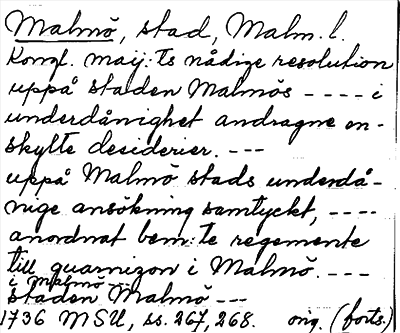 Malmö, stad, Malm. l.
Kongl. maij:ts nådige resolution
uppå staden Malmös ---- i
underdånighet andragne en-
skylte desiderier. ---
uppå Malmö stads underdå-
nige ansökning samtyckt, ----
anordnat bem:te regemente
till guarnizon i Malmö. ---
i Malmö ---
staden Malmö ---
1736 MSU, ss. 267, 268. orig. (forts.)